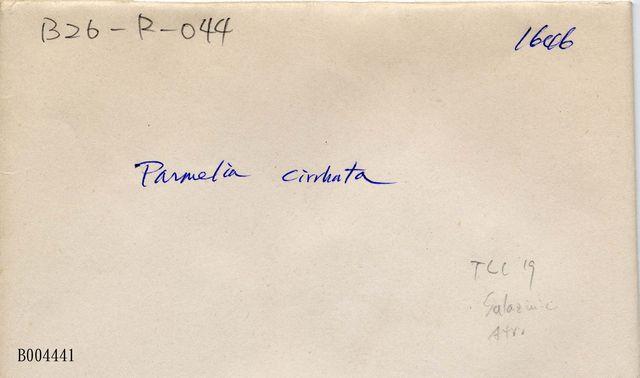 B26-R-044
1646
Parmelia cirrhata
TLC 19
Salazinic
Atr.
B004441